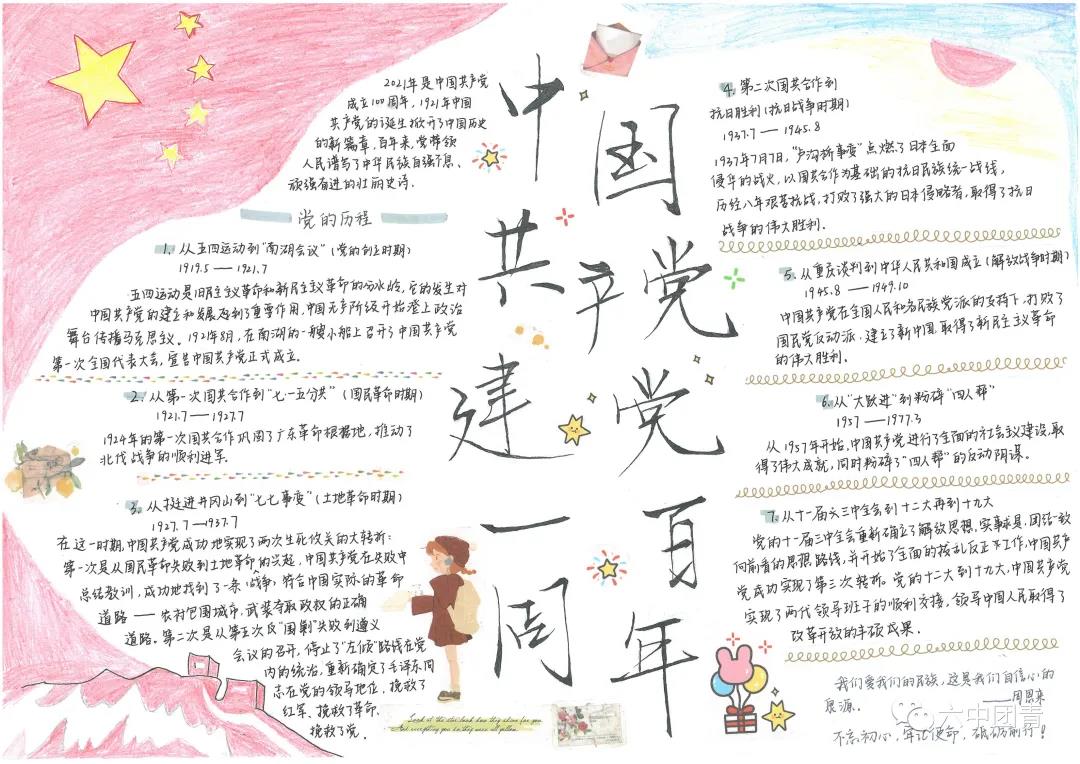 2021年是中国共产党
成立100周年,1921年中国
共产党的诞生掀开了中国历史
的新篇章,百年来,党带领
人民谱写了中华民族自强不息、
顽强奋进的壮丽史诗.
党的历程
1. 从五四运动到"南湖会议"(党的创立时期)
1919.5——1921.7
五四运动是旧民主主义革命和新民主主义革命的分水岭,它的发生对
中国共产党的建立和发展起到了重要作用,中国无产阶级开始登上政治
舞台传播马克思主义。1921年8月,在南湖的一艘小船上召开了中国共产党
第一次全国代表大会,宣告中国共产党正式成立.
2. 从第一次国共合作到"七一五分共"(国民革命时期)
1921.7——1927.7
1924年的第一次国共合作巩固了广东革命根据地,推动了
北伐战争的顺利进军.
3. 从挺进井冈山到"七七事变"(土地革命时期)
1927.7—1937.7
在这一时期,中国共产党成功地实现了两次生死攸关的大转折:
第一次是从国民革命失败到土地革命的兴起,中国共产党在失败中
总结教训,成功地找到了一条(战争)符合中国实际的革命
道路——农村包围城市,武装夺取政权的正确
道路。第二次是从第五次反"围剿"失败到遵义
会议的召开,停止了"左倾"路线在党
内的统治,重新确定了毛泽东同
志在党的领导地位,挽救了
红军、挽救了革命、
挽救了党.
Look at the stars look how they shine for you
And everything you do they were all yellow.
中国
共产党
建党
一百
周年
4. 第二次国共合作到
抗日胜利(抗日战争时期)
1937.7——1945.8
1937年7月7日,"卢沟桥事变"点燃了日本全面
侵华的战火,以国共合作为基础的抗日民族统一战线,
历经八年艰苦抗战,打败了强大的日本侵略者,取得了抗日
战争的伟大胜利.
5. 从重庆谈判到中华人民共和国成立(解放战争时期)
1945.8——1949.10
中国共产党在全国人民和各民族党派的支持下,打败了
国民党反动派.建立了新中国.取得了新民主主义革命
的伟大胜利.
6. 从"大跃进"到粉碎"四人帮"
1957——1977.3
从1957年开始,中国共产党进行了全面的社会主义建设,取
得了伟大成就,同时粉碎了"四人帮"的反动阴谋。
7. 从十一届六三中全会到十二大再到十九大
党的十一届三中全会重新确立了解放思想,实事求是,团结一致
向前看的思想路线,并开始了全面的拨乱反正工作,中国共产
党成功实现了第三次转折。党的十二大到十九大,中国共产党
实现了两代领导班子的顺利交接,领导中国人民取得了
改革开放的丰硕成果.
我们爱我们的民族,这是我们自信心的
泉源.
——周恩来
六中团青
不忘初心,牢记使命,砥砺前行!